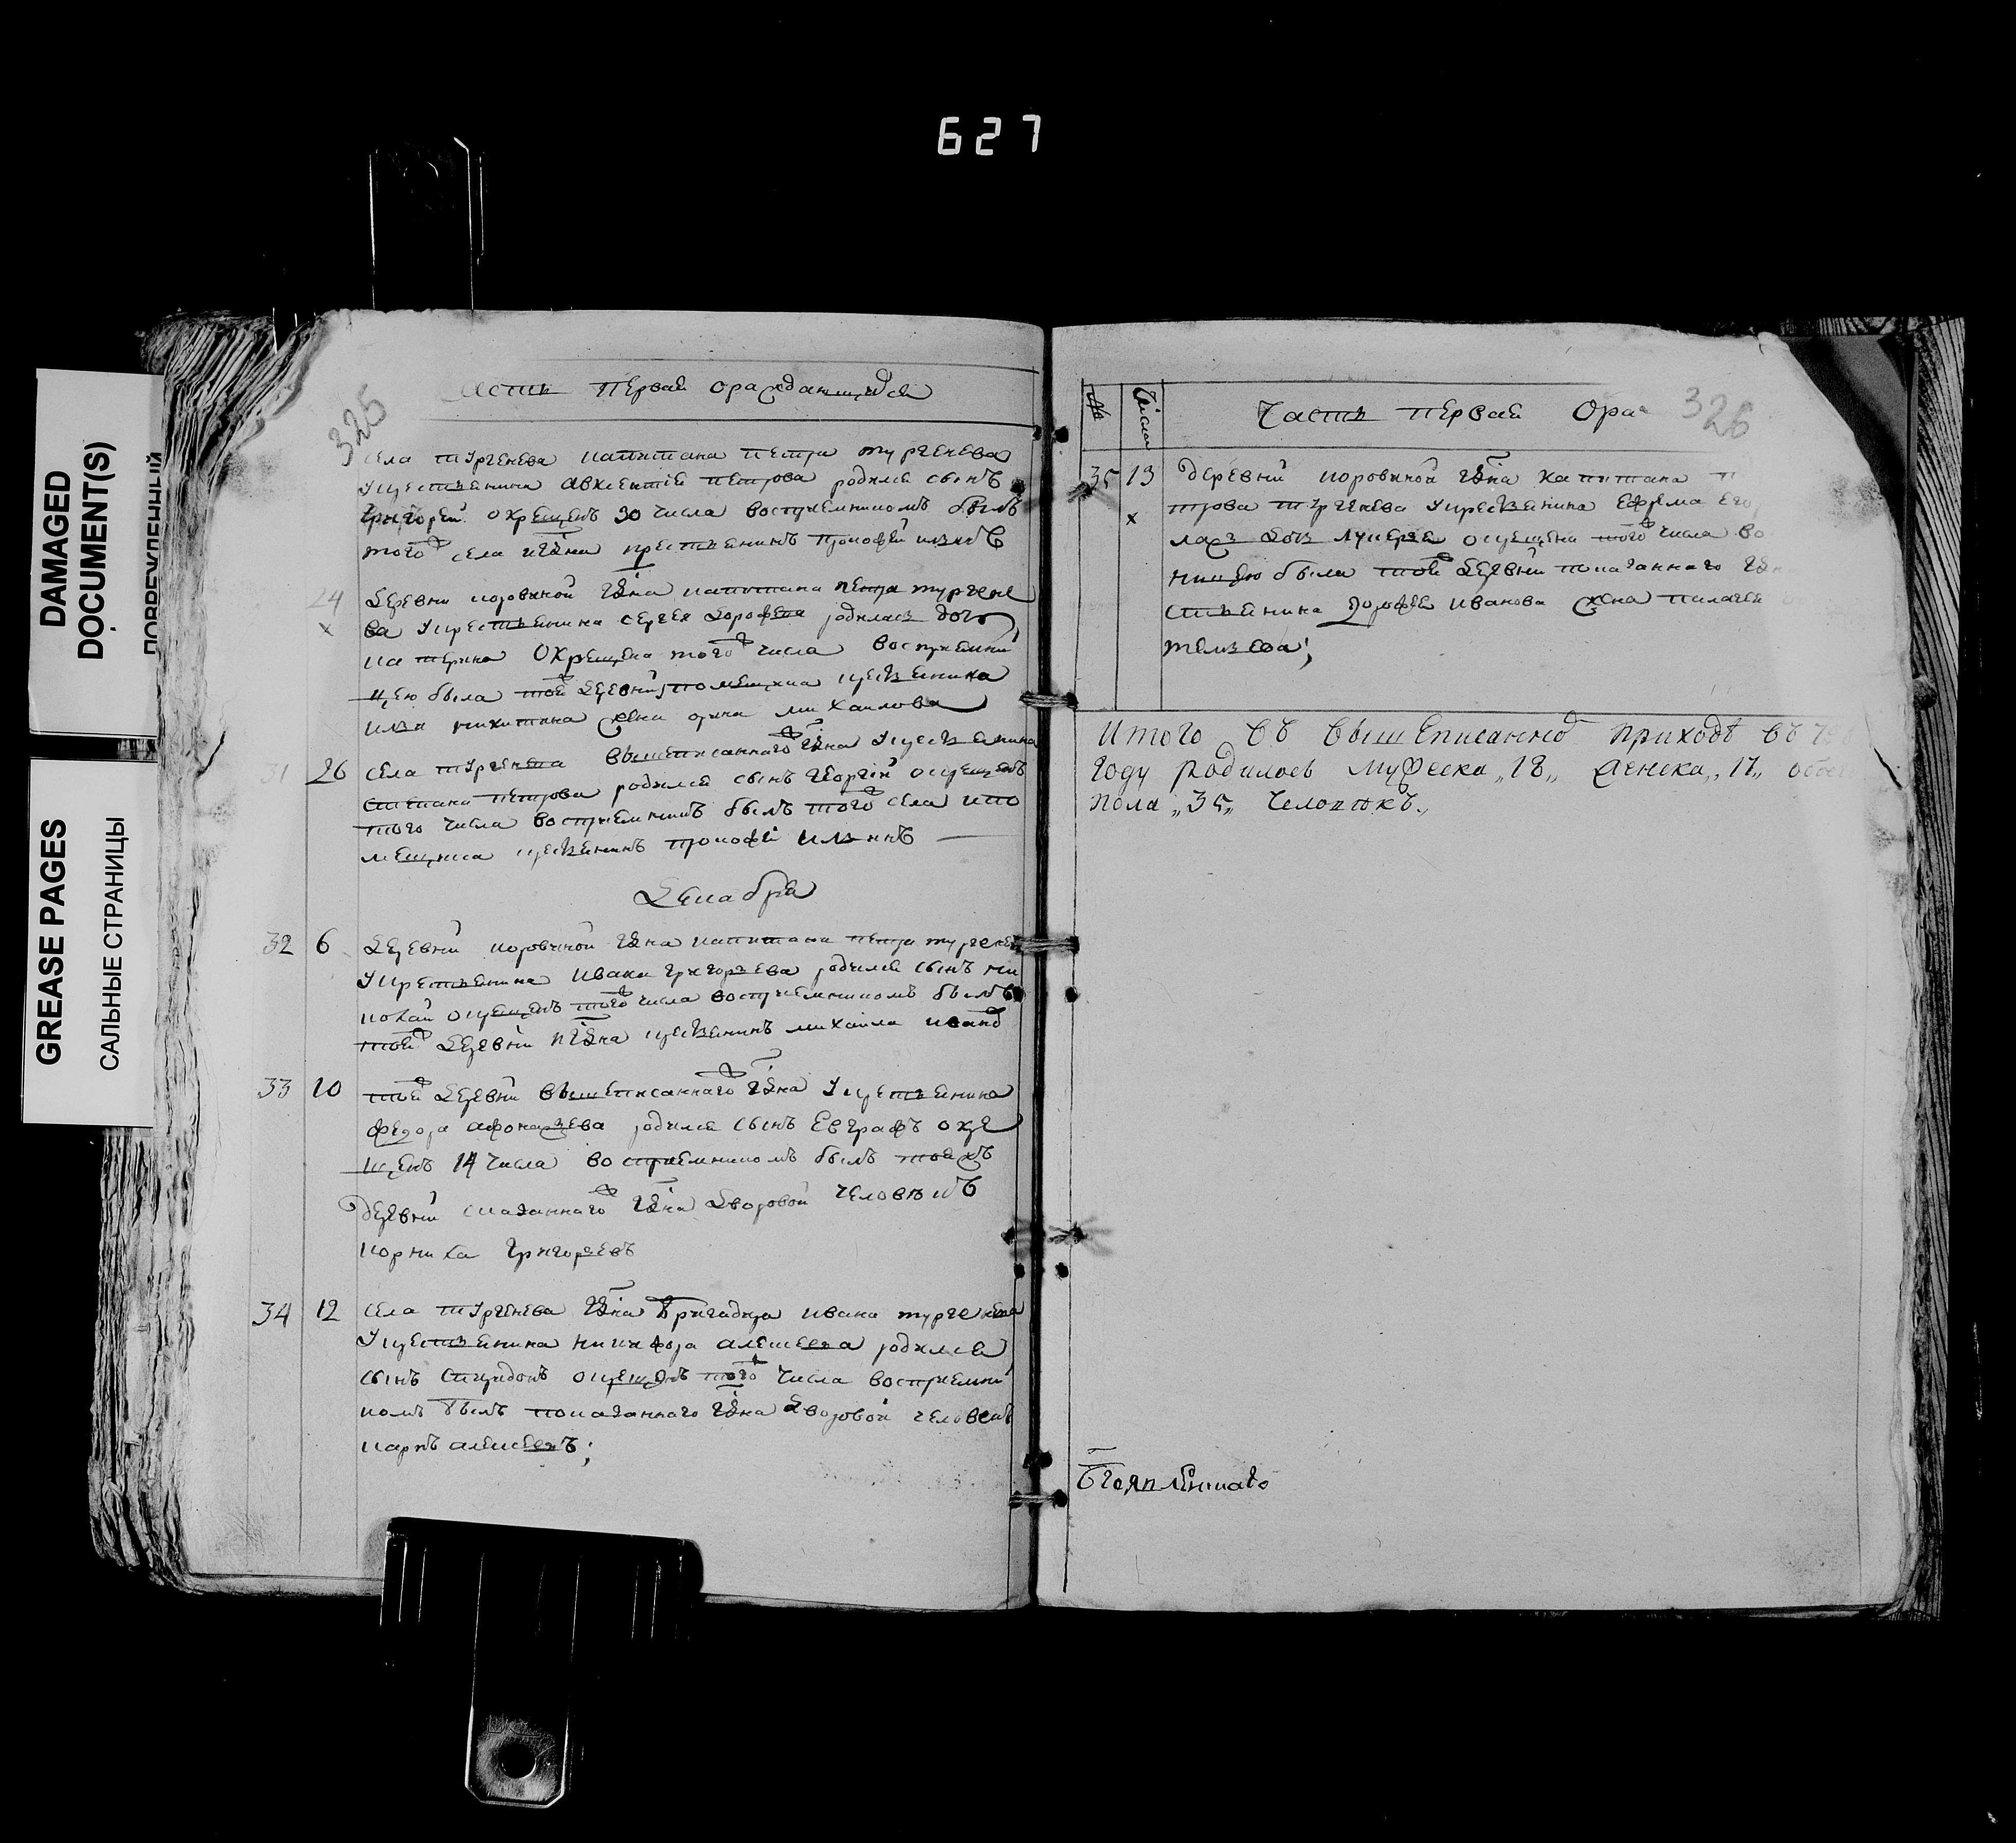 627
DAMAGED
DOCUMENT(S)
ПОВРЕЖДЕННЫЙ
GREASE PAGES
САЛЬНЫЕ СТРАНИЦЫ
326
асть первая ораждающихся
села тургенева капитана петра тургенева
у крестьянина авксентия петрова родился сынъ
григорей окрещенъ 30 числа восприемникомъ былъ
того села крестьянинъ прокофей
24 деревни коровиной гдна капитана петра тургене
х ва у крестьянина сергея дорофеева родилась дочь
катерина окрещена того числа восприемни
цею была той деревни помещика крестьянина
никитина жена михаилова
31 26 села тургенева вышеписаннаго гдна у крестьянина
степана петрова родился сынъ георгий окрещенъ
того числа восприемникъ былъ того села и по
мещика крестьянинъ прокофей
декабря
32 6 деревни коровиной гдна капитана петра тургенев
у крестьянина ивана григорьева родился сынъ ни
колай окрещенъ того числа восприемникомъ былъ
той деревни гдна крестьянинъ михаила иванов
33 10 той деревни вышеписаннаго гдна у крестьянина
федора афонасьева родился сынъ евграфъ окре
щенъ 14 числа восприемникомъ былъ тояжъ
деревни сказаннаго гдна дворовой человекъ
корнила григорьевъ
34 12 села тургенева гдна бригадира ивана тургенева
у крестьянина никифора алексеева родился
сынъ спиридонъ окрещенъ того числа восприемни
комъ былъ показаннаго гдна дворовой человекъ
карпъ алексеевъ;
№ Число Часть первая Ора 326
35 13 деревни коровиной гдна капитана п
х трова тургенева у крестьянина ефрема его
лась дочь лукерья окрещена того числа во
ницею была той деревни показаннаго гдн
стьянина дорофея иванова жена пелагея
Итого въ вышеписанномъ приходѣ въ
году родилось мужеска „18„ женска „17„ обоег
пола „35„ человѣкъ.
Бгоявленскаго